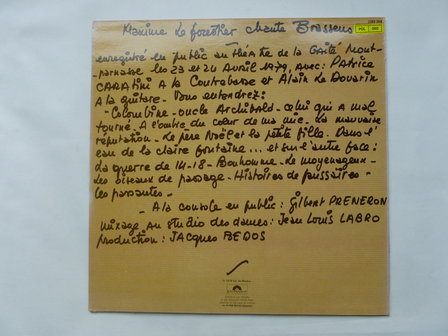 Maxime Le forestier chante Brassens
enregistré en public au théatre de la Gaité Mont-
-parnasse les 23 et 24 Avril 1979, avec: Patrice
CARATINI A la Contrebasse et Alain Le Douarin
A la guitare - Vous entendrez:
- Colombine - oncle Archibald - celui qui a mal
tourné. A l'ombre du coeur de ma mie. La mauvaise
réputation - Le père Noël et la petite fille. Dans l'
eau de la claire fontaine ... et sur l'autre face:
La guerre de 14-18 - Bonhomme - Le moyenageux -
Les oiseaux de passage - Histoires de faussaires -
Les passantes -
- A la console en public: Gilbert PRENERON
mixage Au studio des dames: Jean Louis LABRO
production: JACQUES BEDOS